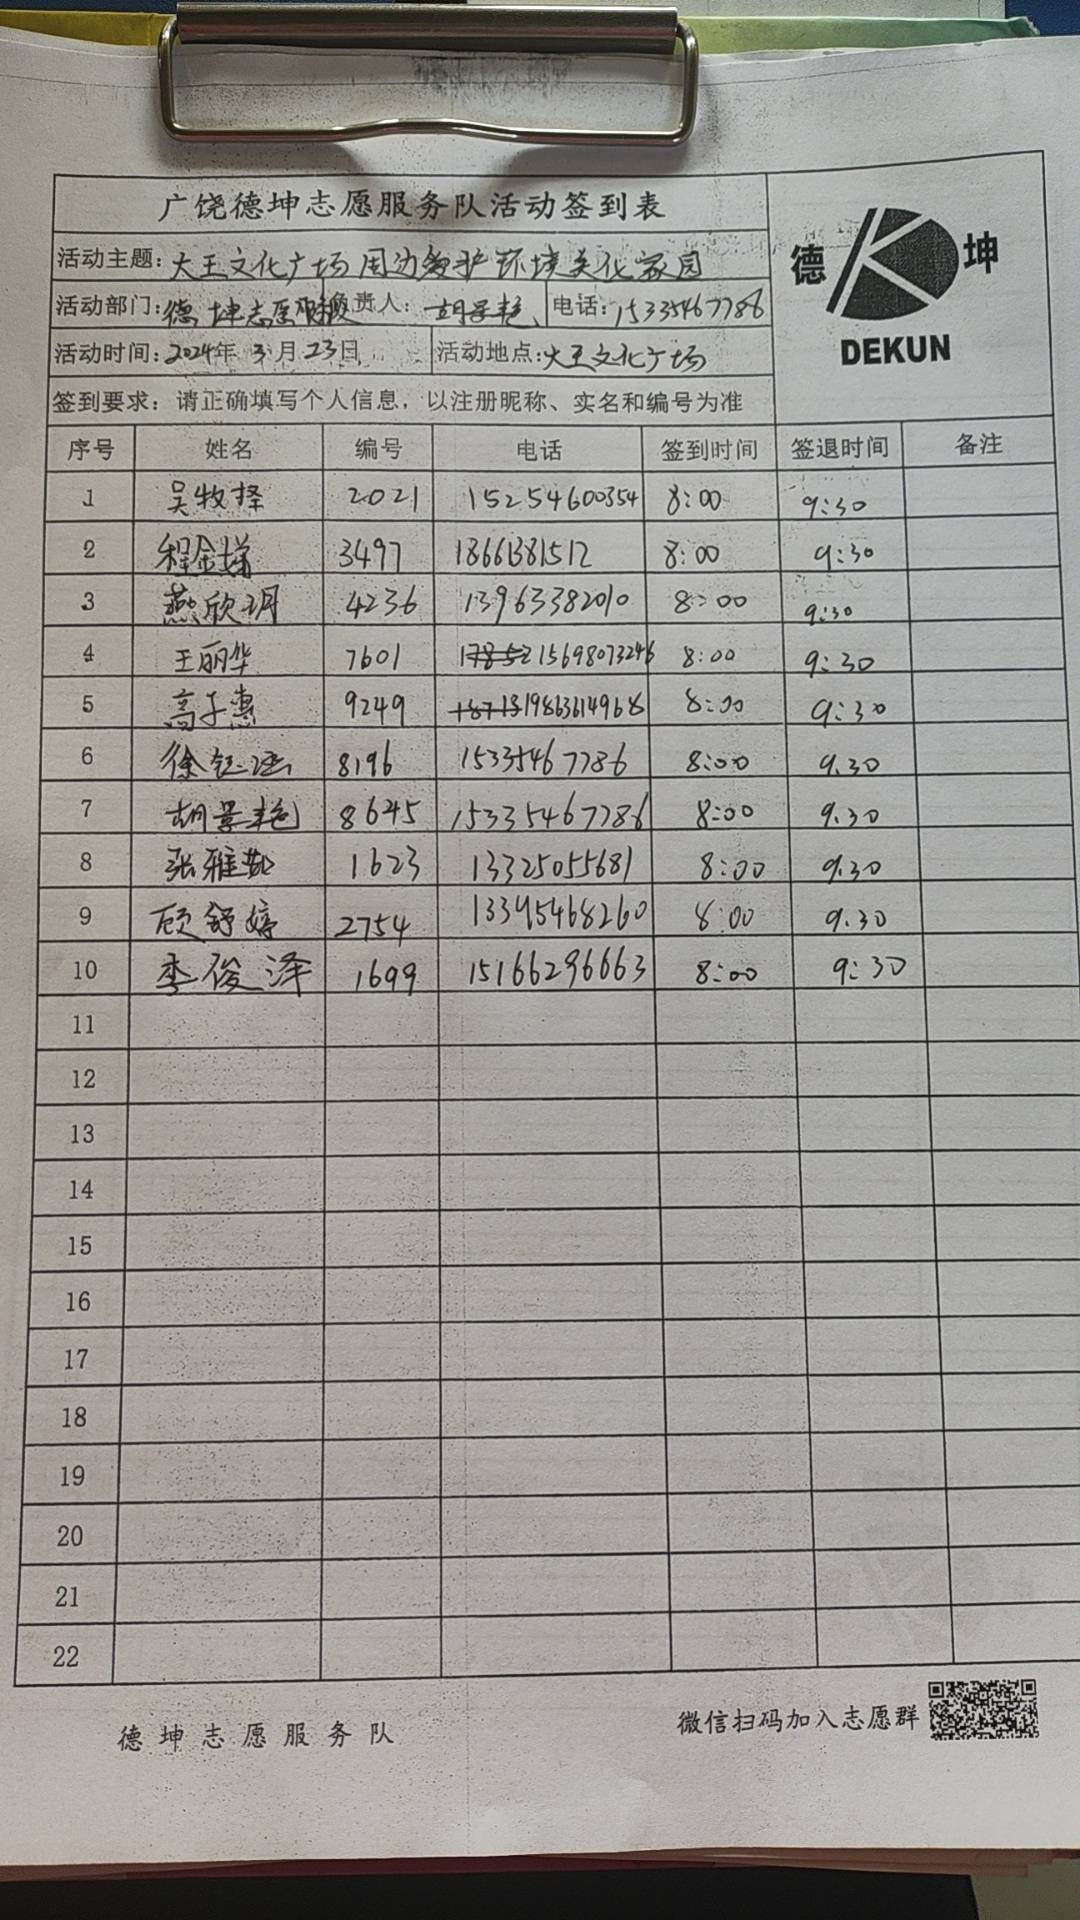 广饶德坤志愿服务队活动签到表
德 坤
DEKUN
活动主题: 大王文化广场周边爱护环境美化家园
活动部门: 德坤志愿服务队 负责人: 胡景艳 电话: 15335467786
活动时间: 2024年3月23日 活动地点: 大王文化广场
签到要求: 请正确填写个人信息, 以注册昵称、实名和编号为准
序号 姓名 编号 电话 签到时间 签退时间 备注
1 吴牧择 2021 15254600354 8:00 9:30
2 程金 3497 18661381512 8:00 9:30
3 燕欣玥 4236 13963382010 8:00 9:30
4 王丽华 7601 15698073246 8:00 9:30
5 高子惠 9249 19863614968 8:00 9:30
6 徐钰涵 8196 15335467786 8:00 9.30
7 胡景艳 8645 15335467786 8:00 9.30
8 张雅勤 1623 13325055681 8:00 9.30
9 顾舒婷 2754 13395468260 8:00 9.30
10 李俊泽 1699 15166296663 8:00 9:30
11
12
13
14
15
16
17
18
19
20
21
22
德坤志愿服务队 微信扫码加入志愿群